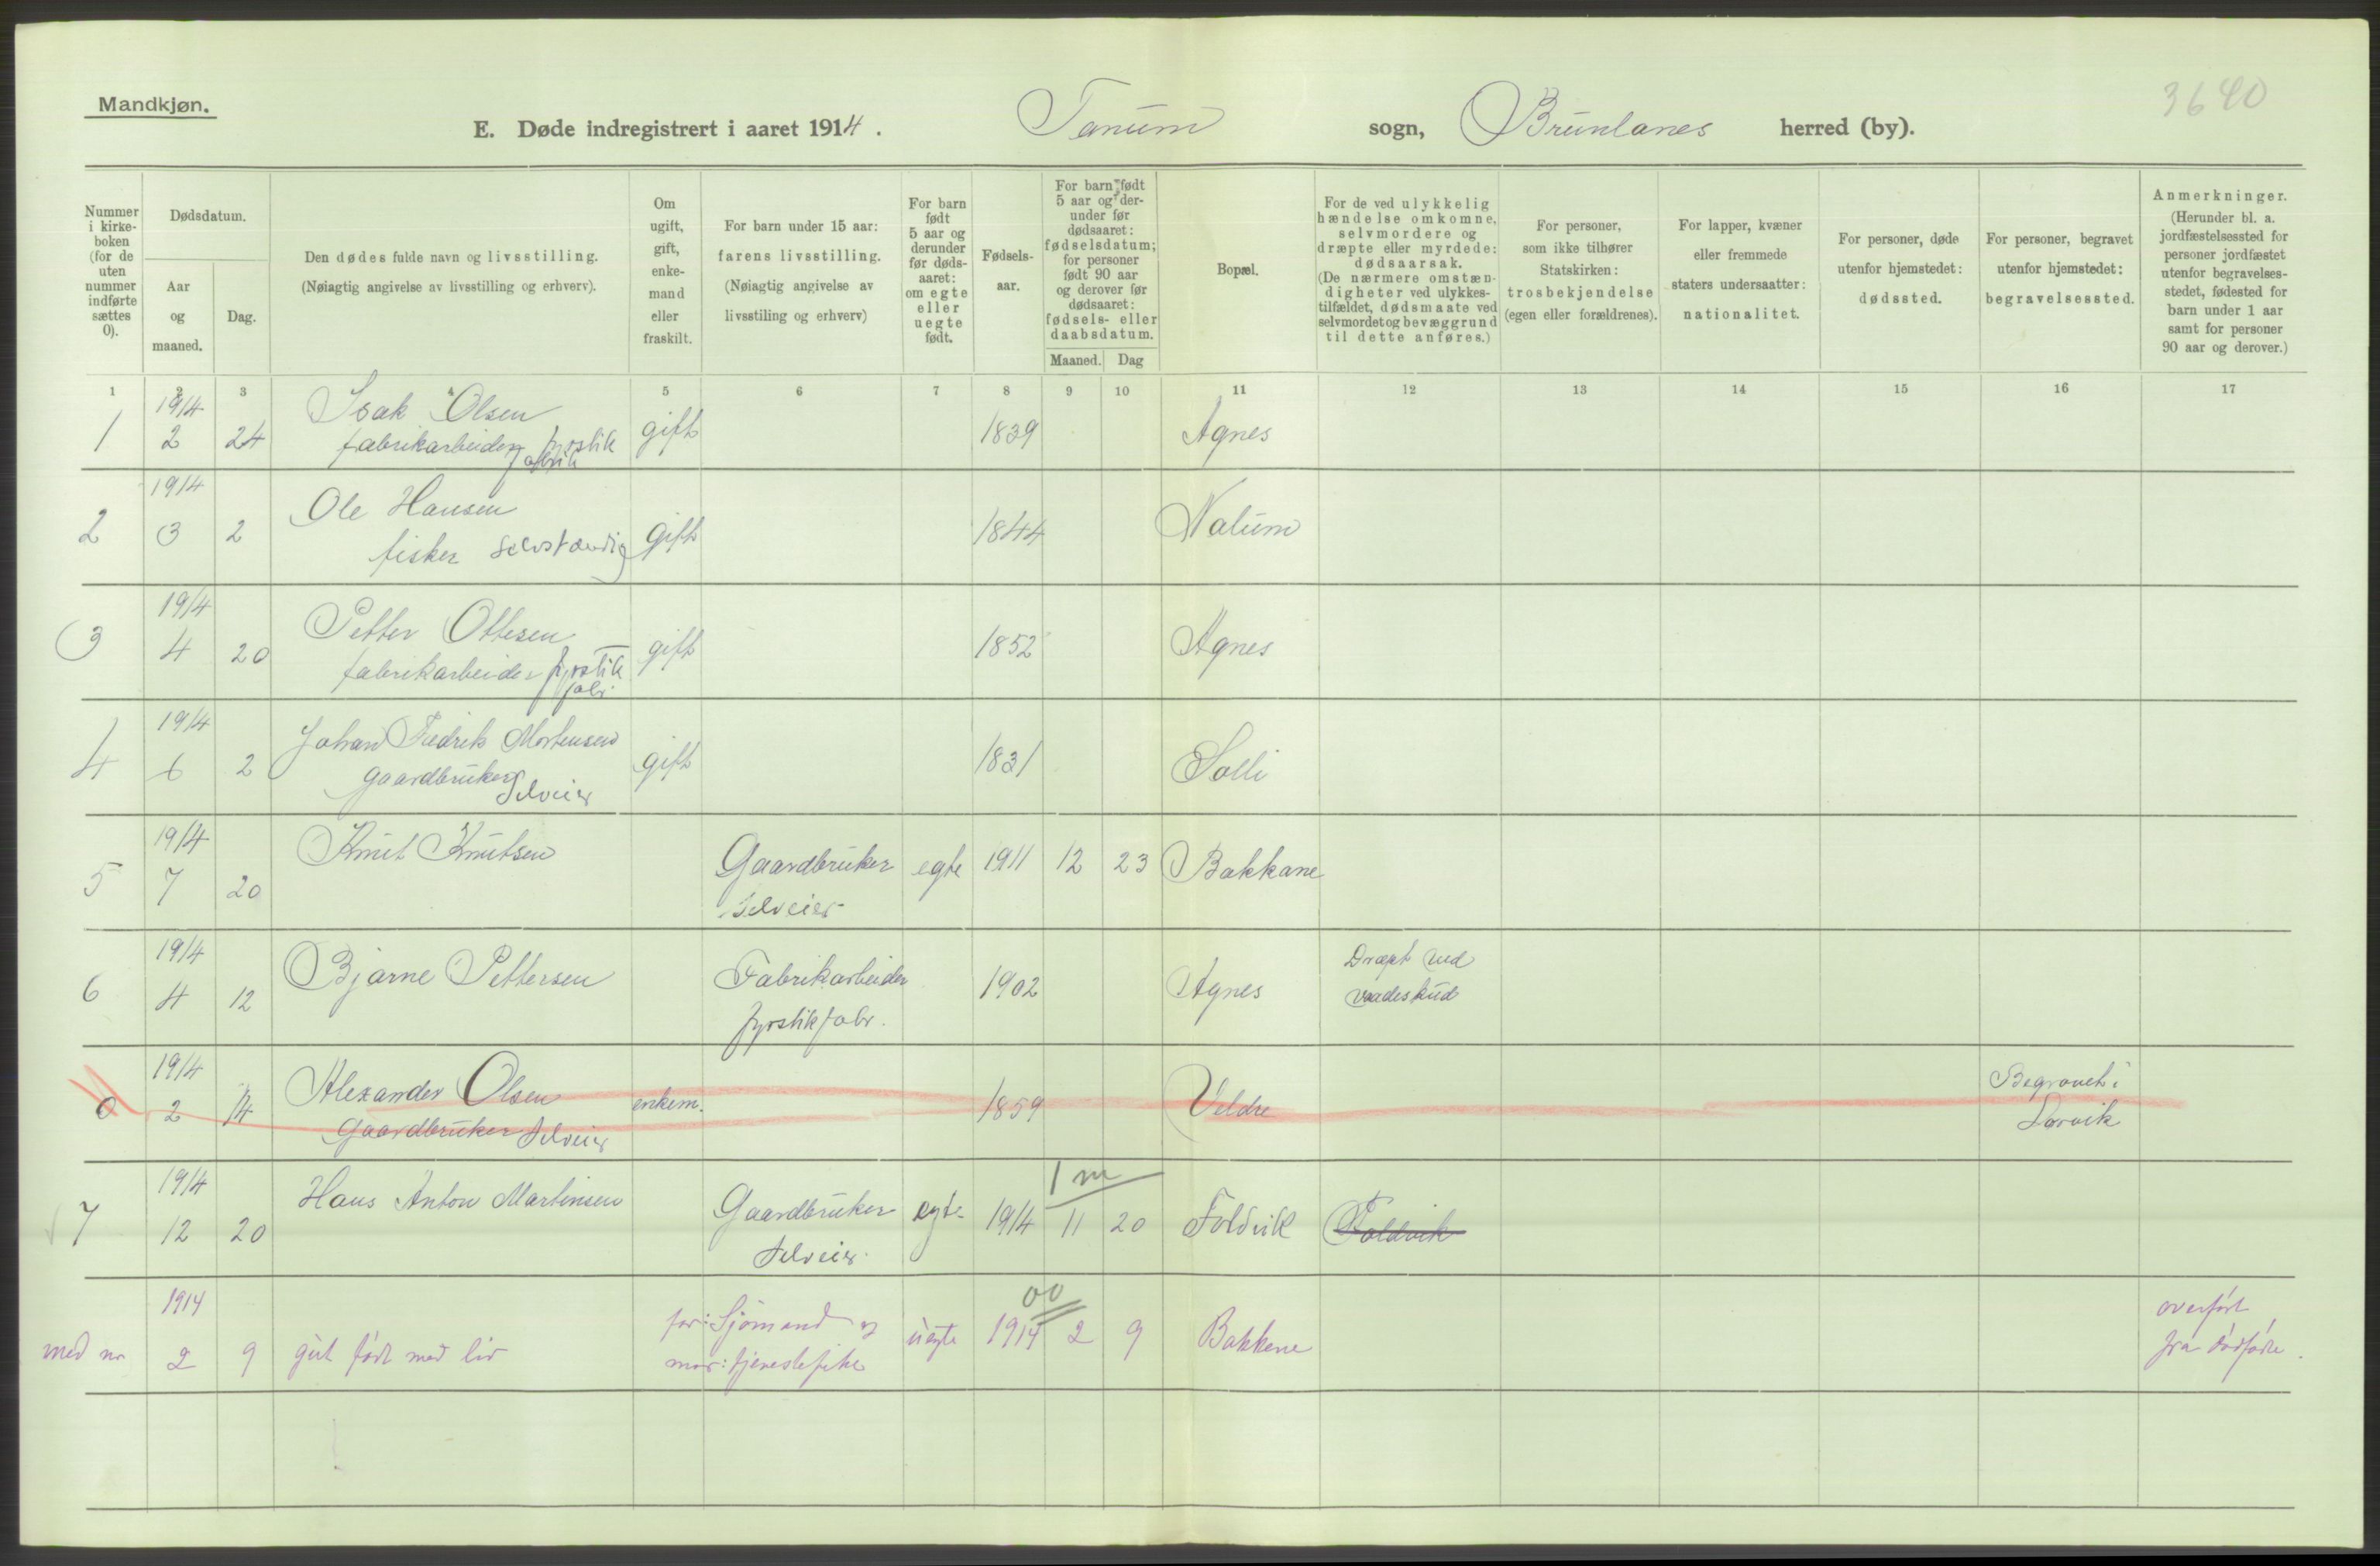 Mandkjøn.
3640
E. Døde indregistrert i aaret 1914. Tanum sogn, Brunlanes herred (by).
Nummer i kirke-boken (for de uten nummer indførte sættes 0).
Dødsdatum.
Aar og maaned.
Dag.
Den dødes fulde navn og livsstilling.
(Nøiagtig angivelse av livsstilling og erhverv).
Om ugift, gift, enke-mand eller fraskilt.
For barn under 15 aar: farens livsstilling.
(Nøiagtig angivelse av livsstiling og erhverv)
For barn født 5 aar og derunder før døds-aaret: om egte eller uegte født.
Fødsels-aar.
For barn født 5 aar og der-under før dødsaaret: fødselsdatum; for personer født 90 aar og derover før dødsaaret: fødsels- eller daabsdatum.
Maaned. Dag
Bopæl.
For de ved ulykkelig hændelse omkomne, selvmordere og dræpte eller myrdede: dødsaarsak.
(De nærmere omstæn-digheter ved ulykkes-tilfældet, dødsmaate ved selvmordet og bevæggrund til dette anføres.)
For personer, som ikke tilhører Statskirken: trosbekjendelse (egen eller forældrenes).
For lapper, kvæner eller fremmede staters undersaatter: nationalitet.
For personer, døde utenfor hjemstedet: dødssted.
For personer, begravet utenfor hjemstedet: begravelsessted.
Anmerkninger.
(Herunder bl. a. jordfæstelsessted for personer jordfæstet utenfor begravelses-stedet, fødested for barn under 1 aar samt for personer 90 aar og derover.)
1 2 3 4 5 6 7 8 9 10 11 12 13 14 15 16 17
1 1914 2 24 Isak Olsen gift 1839 Agnes
fabrikarbeider fyrstik
fabrik
2 1914 3 2 Ole Hansen gift 1844 Nalum
fisker selvstændig
3 1914 4 20 Petter Ottesen gift 1852 Agnes
fabrikarbeider fyrstik
fabr.
4 1914 6 2 Johan Fredrik Mortensen gift 1831 Solli
gaardbruker Selveier
5 1914 7 20 Knut Knutsen Gaardbruker egte 1911 12 23 Bakkane
Selveier
6 1914 4 12 Bjarne Pettersen Fabrikarbeider 1902 Agnes Dræpt ved
fyrstikfabr. vaadeskud
0 1914 2 14 Alexander Olsen enkem. 1859 Veldre Begravet i
Gaardbruker Selveier Larvik
1 m
7 1914 12 20 Hans Anton Martinsen Gaardbruker egte 1914 11 20 Foldvik Foldvik
Selveier
00
med nr 1914 2 9 gut født med liv far: Sjømand og uegte 1914 2 9 Bakkene overført
mor: tjenestepike fra dødfødte.